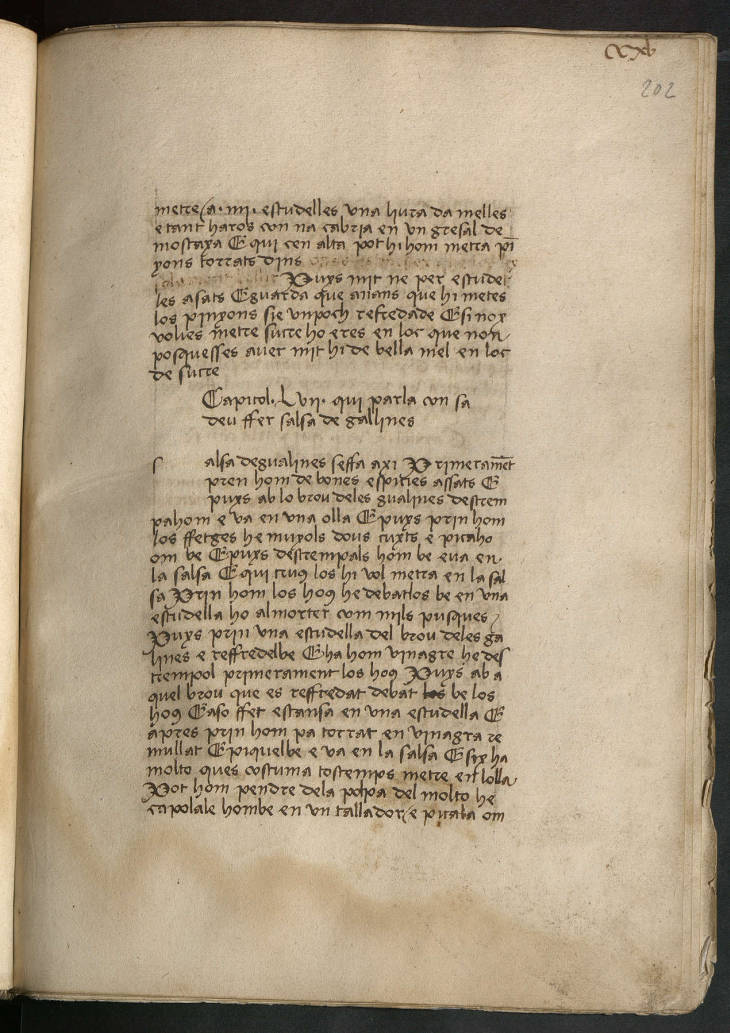 xxv
202
metre a · iiii · escudelles vna liura da melles
e tant haros con na cabria en vn gresal de
mostaxa E qui cen alta pot hi hom metra pi
yons torrats dins
Puys mit ne per escude
les asats E guarda que auans que hi metes
los pinyons sie vn poch refredade E si nox
volies metre sucre ho eres en loc que non
posquesses auer mit hi de bella mel en loc
de sucre
Capitol · Lvii · qui parla con sa
deu ffer salsa de gallines
s alsa de gualines se ffa axi Primeramēt
pren hom de bones espicies assats E
puys ab lo brou de les gualines destrem
pa hom e va en vna olla E puys prin hom
los ffetges he muyols dous cuyts e pica ho
om be E puys destrempals hom be e va en
la salsa E qui cruus los hi vol metra en la sal
sa Prin hom los hous he debat los be en vna
escudella ho al morter com mils pusques
Puys prin vna escudella del brou de les ga
lines e reffredelbe E ha hom vinagre he des
trempol primerament los hous Puys ab a
quel brou que es reffredat debat be los
hous E aso ffet estansa en vna escudella E
apres prin hom pa torrat en vinagra re
mullat E piquelbe e va en la salsa E si x ha
molto ques costuma tostemps metre en lolla
Pot hom pendre de la polpa del molto he
capolale hom be en vn tallador e picala om